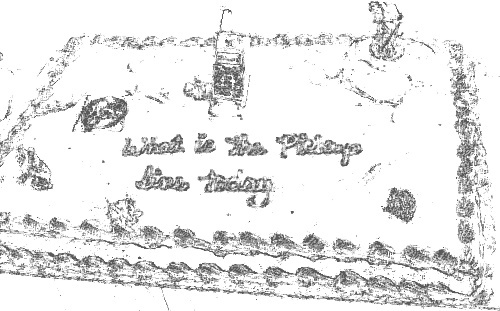 What is the Pickup
line today